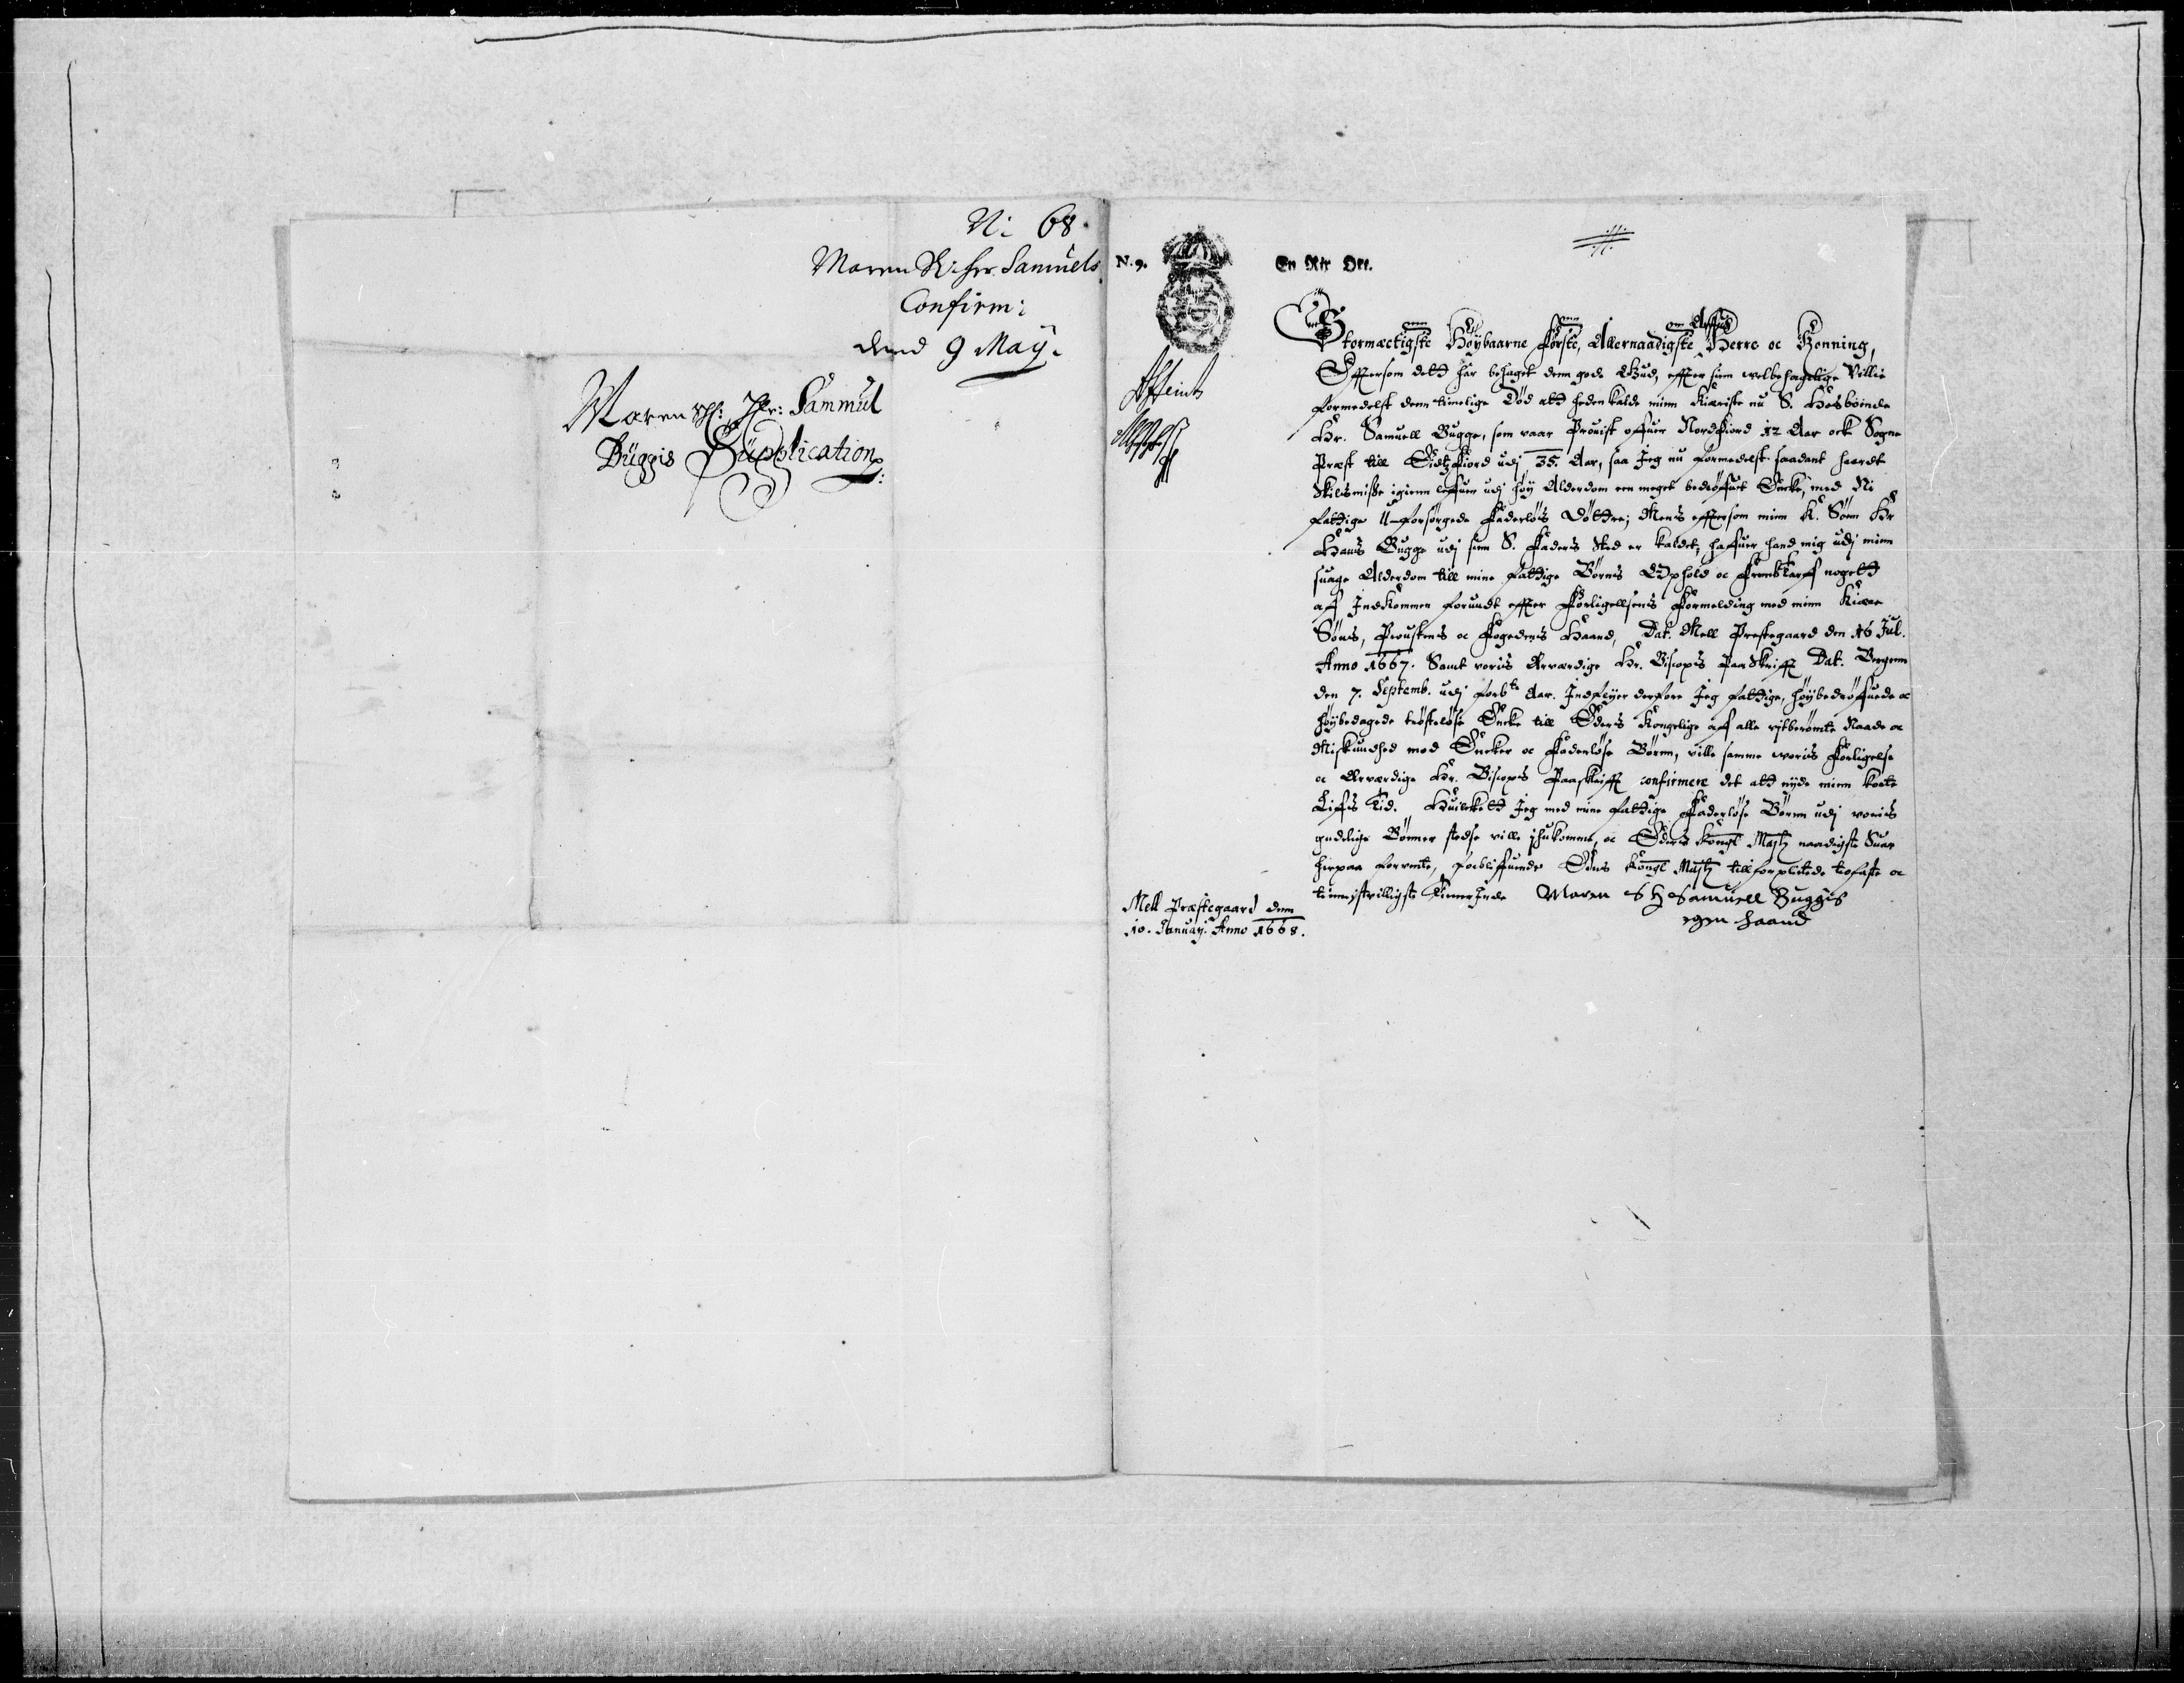 N: 68.
Maren S. Hr. Samuels
Confirm:
dend 9 Maÿ.
Maren Sl: Hr: Sammul
Büggis Süpplication
N. 9.
En Rix Ort.
Stormectigste Høybaarne Første, Allernaadigste Arffue Herre oc Konning,
Effersom dett har behaget denn gode Gud, effter sinn welbehagelige Villie
formedelst denn timelige Død att heden kalde minn kiæriste nu S. Hosbonde
Hr. Samuell Bugge, som vaar Prouist offuer Nordfiord 12 Aar ock Sogne
Præst till Eidtzfiord udj 35. Aar, saa Jeg nu formedelst saadant haardt
skilsmisse igienn leffuer udj høy Alderdom een meget bedrøffuet Encke, med Ni
fattige U-forsørgede Faderløss Døttre; Mens effersom minn K. Sønn Hr
Hanns Bugge udj sinn S. Faders sted er kaldet, haffuer hand mig udj minn
suage Alderdom till mine fattige Børns Ophold oc Fremtarff nogett
aff Indkommen forundt effter Forligellsens Formelding med minn kiære
Søns, Proustens oc Fogedens Haand, Dat. Mell Prestegaard den 16 Jul.
Anno 1667. Samt voris Ærværdige Hr. Biscops Paaskrifft Dat. Bergenn
den 7. Septemb. udj forbte Aar. Indflyer derfore Jeg fattige, høybedrøffuede oc
høybedagede trøstesløse Encke till Eders Kongelige aff alle vitberømte Naade oc
Miskundhed mod Encker oc Faderløse Børnn, ville samme voris Forligelse
oc Ærværdige Hr. Biscops Paaskrifft confirmere det att nyde minn korte
Lifs Tid. Huilckett Jeg med mine fattige Faderløse Børnn udj voris
gudelige Bønner stedse ville ihukomme, oc Eders Kongl Majtz naadigste Suar
herpaa forvente, forbliffuende Eders Kongl Majtz tillforplictede trofaste oc
tiennistvilligste Tienerinde Maren S H Samuell Buggis
egen haand
Mell Præstegaard denn
10. Januarj. Anno 1668.